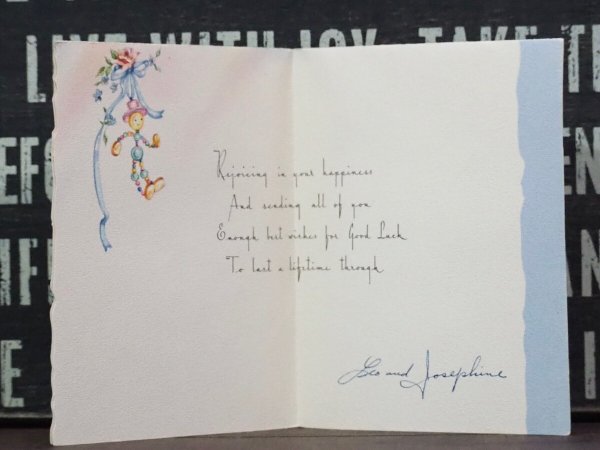 LIVE WITH JOY TAKE TI
EF
EN
IF
AN
E
Rejoicing in your happiness
And sending all of you
Enough best wishes for Good Luck
To last a lifetime through
Leo and Josephine